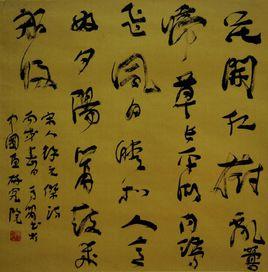 花開紅樹亂鶯
啼草長平湖白鷺
飛風日晴和人意
好夕陽簫鼓幾
船歸
宋人徐元傑詩
中國畫研究院